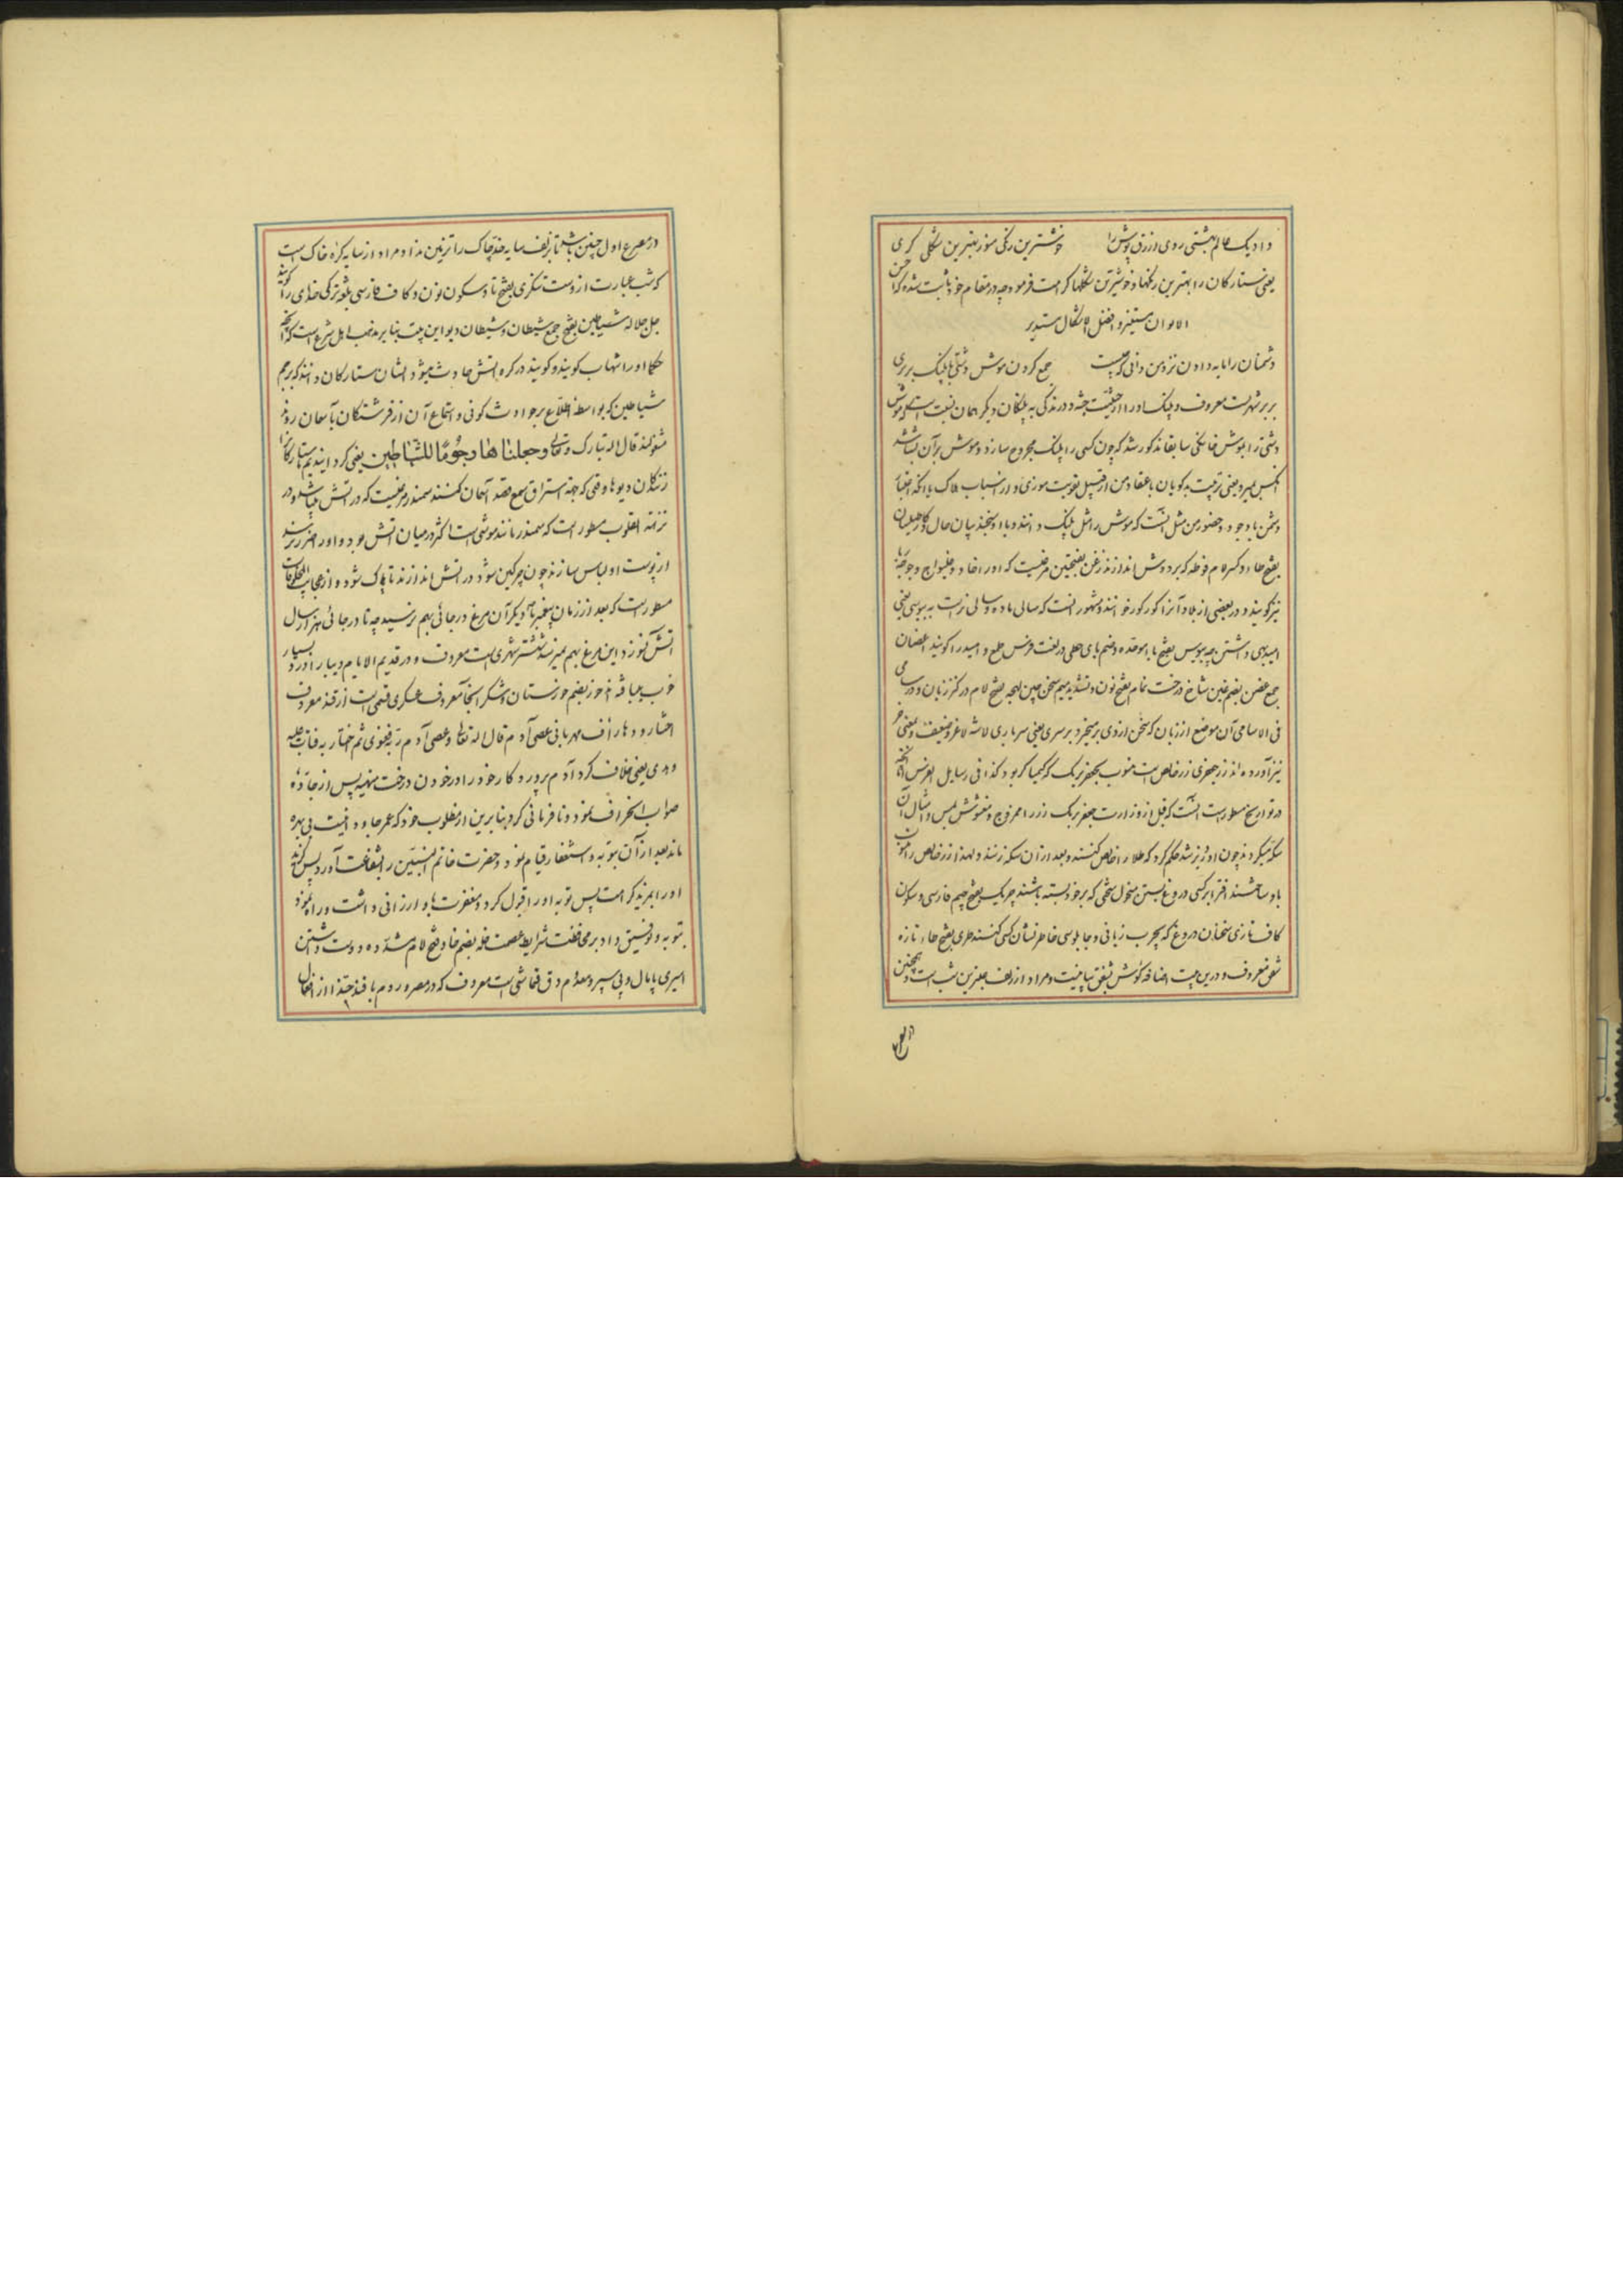 داد یک عالم بهشتی روی ازرق پوش را خوشترین رنگی منور بهترین شکلی کری
یعنی ستارکان را بهترین رنکها و خوشترین شکلها کرامت فرمود چه در مقام خود ثابت شده که احسن
الالوان مستنیر و افضل الاشکال مستدیر
دشمنان را مایه دادن نزد من دانی که چیست جمع کردن موش دشتی با پلنک بربری
بربر شهریست معروف و پلنک اورا از حیثیت جثه و درندکی به پلنکان دیکر همان نسبت است که موش
دشتی را بموش خانکی سابقا مذکور شد که چون کسی را پلنک مجروح سازد و موش بر آن بشاشد
آنکس بمیرد یعنی تربیت بدکویان باعتقاد من از قبیل تقویت موذی و از اسباب هلاک یا آنکه اجتماع
دشمن با وجود و حضور من مثل آنست که موش را مثل پلنک دانند و با او سنجند بیان حال و کاه حیلسان
بفتح حاء و کسر لام فوطه که بر دوش اندازند زغن بفتحتین مرغیست که اورا خاد و غلیواج و جوجه ربا
نیز کویند و در بعضی از بلاد آنرا کورکور خوانند و مشهور است که سالی ماده و سالی نرست به بیوسی یعنی
امیدی داشتن چه بیوس بفتح باء موحده و ضم یای حطی در لغت فرس طمع و امید را کویند اغصان
جمع غصن بضم غین شاخ درخت نمام بفتح نون و تشدید میم سخن چین لهجه بفتح لام در کنز زبان و در سامی
فی الاسامی آن موضع از زبان که سخن از وی برمیخیزد بر سری یعنی سرباری لاشه لاغر و ضعیف و بمعنی خر
نیز آورده اند زر جعفری زر خالص است منسوب بجعفر برمک که کیمیاکر بود کذا فی رسایل الفرس اما آنچه
در تواریخ مسطور است آنست که قبل از وزارت جعفر برمک زر را ممزوج و مغشوش بمس و امثال آن
سکه میکردند چون او وزیر شد حکم کرد که طلا را خالص کنند و بعد از آن سکه زنند و لهذا زر خالص را منسوب
باو ساختند افترا بر کسی دروغ بستن منحول سخنی که بر خود بسته باشند چربک بفتح جیم فارسی و سکون
کاف تازی سخنان دروغ که بچرب زبانی و چاپلوسی خاطر نشان کسی کنند طری بفتح طاء تازه
شفق معروف و درین بیت اضافه کوشش شفق بیانیست و مراد از زلف عنبرین شب است و همچنین
در مصرع
در مصرع اول چنین باشد تا زلف سایه خد خاک را تزئین مداد مراد از سایه کره خاک است
که شب عبارت از وست تنکری بفتح تا و سکون نون و کاف فارسی بلغه ترکی خدای را کویند
جل جلاله شیاطین بفتح جمع شیطان و شیطان دیو این بیت بنابر مذهب اهل شرع است که آنچه
حکما اورا شهاب کویند و کویند در کره آتش حادث میشود ایشان ستارکان دانند که برجم
شیاطین که بواسطه اطلاع بر حوادث کونی و استماع آن از فرشتکان بآسمان روند
مشغولند قال الله تبارک و تعالی وجعلناها رجوما للشیاطین یعنی کردانیدیم ستارکانرا
زنندکان دیوها وقتی که جهة استراق سمع قصد آسمان کنند سمندر مرغیست که در آتش میباشد و در
نزهة القلوب مسطور است که سمندر مانند موشی است اکثر در میان آتش بود و اورا ضرر نرسد
از پوست او لباس سازند چون چرکین شود در آتش اندازند تا پاک شود و از عجایب المخلوقات
مسطور است که بعد از زمان پیغمبر ما دیکر آن مرغ در جائی بهم نرسید چه تا در جائی هزار سال
آتش نسوزد این مرغ بهم نمیرسد شستر شهری است معروف و در قدیم الایام دیبا را در او بسیار
خوب میبافته اند خوز بضم خوزستان و شکر آنجا معروف عسکری قسمی است از قند معروف
اختیار و دها رأفت مهربانی عصی آدم قال الله تعالی وعصی آدم ربه فغوی ثم اجتباه ربه فتاب علیه
وهدی یعنی خلاف کرد آدم پروردکار خود را در خوردن درخت منهیه پس از جاده
صواب انحراف نمود و نافرمانی کرد بنابرین از مطلوب خود که عمر جاودانیست بی بهره
ماند بعد از آن بتوبه و استغفار قیام نمود و حضرت خاتم النبیین را بشفاعت آورد پس
اورا بمزید کرامت پس توبه اورا قبول کرد و مغفرت باو ارزانی داشت و راه نمود
بتوبه و توفیق داد بر محافظت شرایط عصمت خله بضم خا و فتح لام مشدده دوست داشتن
اسیری پایمال و پی سپر و معلم دق قماشی است معروف که در مصر و روم بافند حبذا از افعال